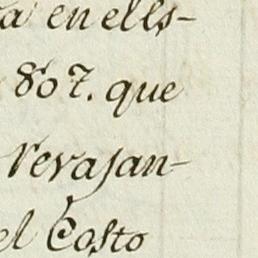 a en ells-
807. que
revajan-
el Costo